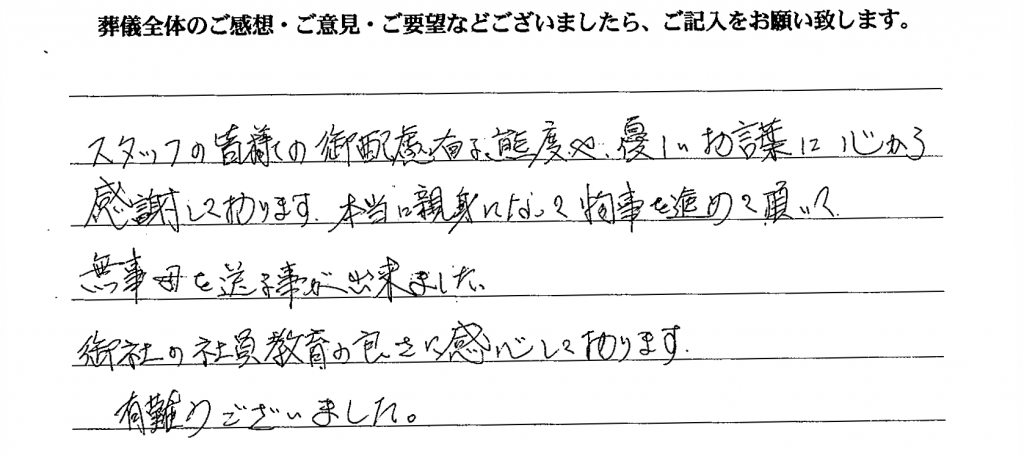 葬儀全体のご感想・ご意見・ご要望などございましたら、ご記入をお願い致します。
スタッフの皆様の御配慮有る態度や、優しいお言葉に心から
感謝しております。本当に親身になって物事を進めて頂いて
無事母を送る事が出来ました。
御社の社員教育の良さに感心しております。
有難うございました。